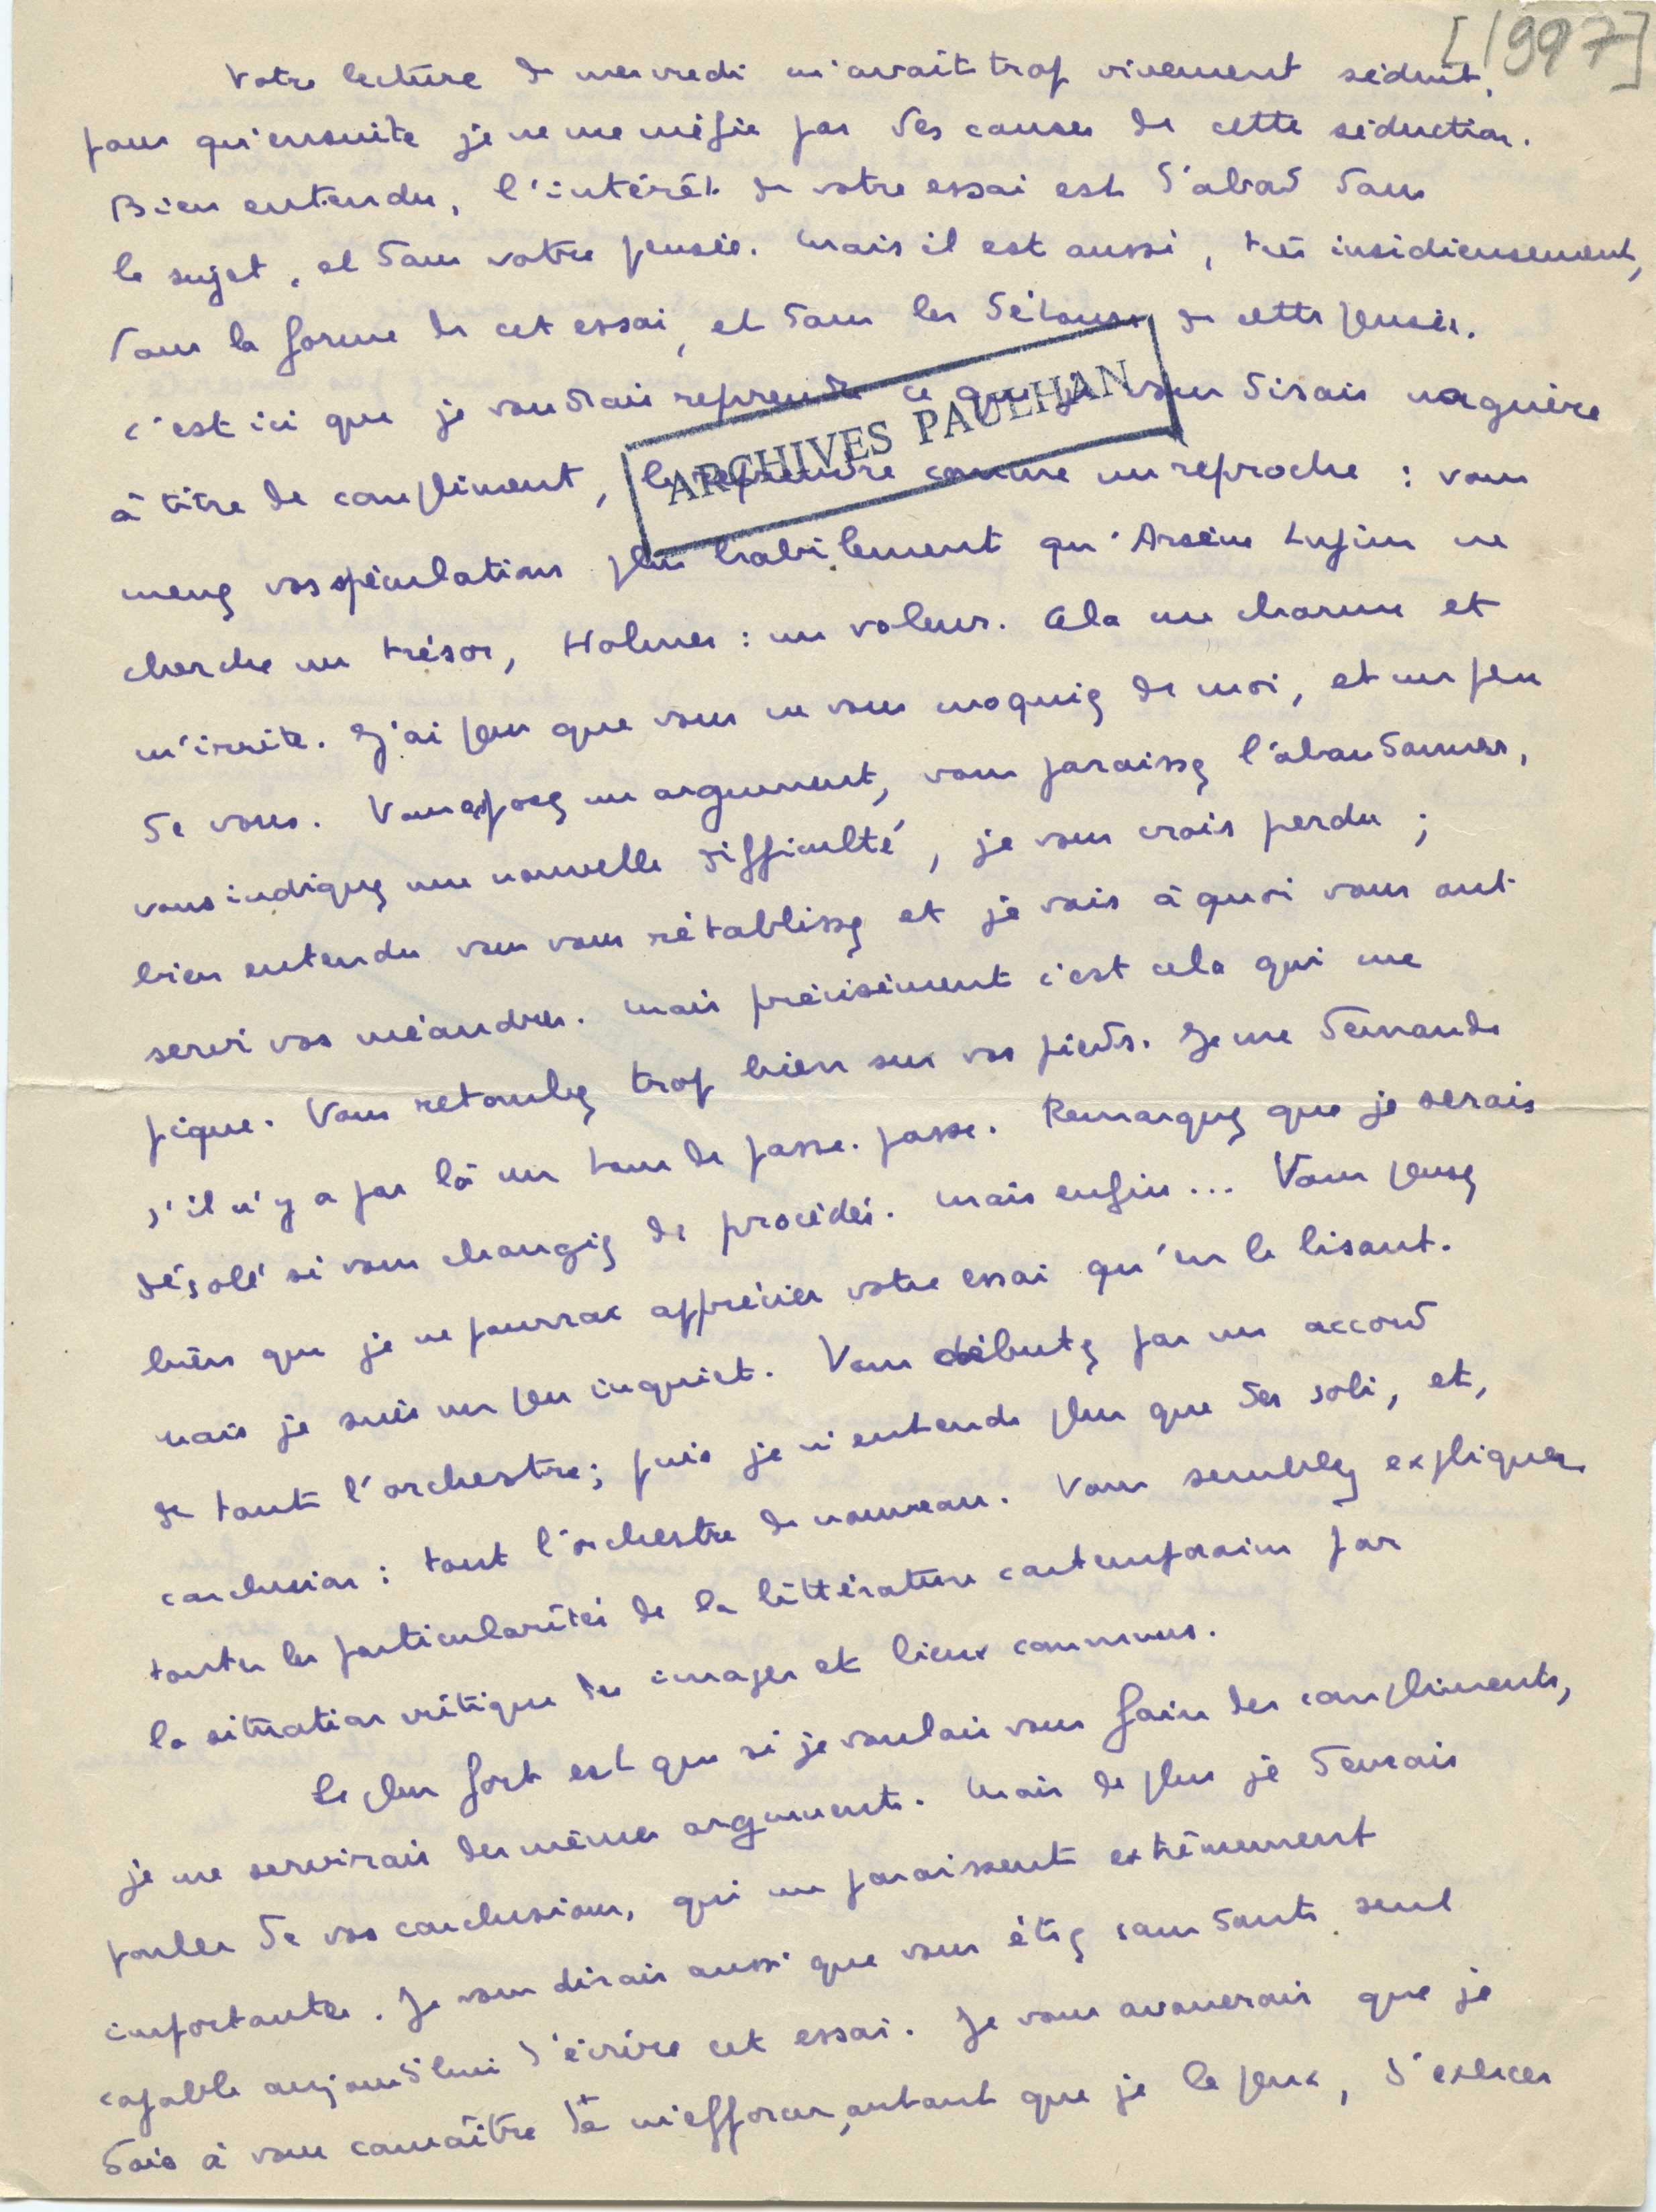 [1997]
Votre lecture de mercredi m'avait trop vivement séduit,
pour qu'ensuite je ne me méfie pas des causes de cette séduction.
Bien entendu, l'intérêt de votre essai est d'abord dans
le sujet, et dans votre pensée. Mais il est aussi, très insidieusement,
dans la forme de cet essai, et dans les détours de cette pensée.
C'est ici que je voudrais reprendre ce que je vous disais naguère
à titre de compliment, le reprendre comme un reproche : vous
ARCHIVES PAULHAN
menez vos spéculations plus habilement qu'Arsène Lupin ne
cherche un trésor, Holmes : un voleur. Cela me charme et
m'irrite. J'ai peur que vous ne vous moquiez de moi, et un peu
de vous. Vous posez un argument, vous paraissez l'abandonner,
vous indiquez une nouvelle difficulté, je vous crois perdu ;
bien entendu vous vous rétablissez et je vois à quoi vous ont
servi vos méandres. Mais précisément c'est cela qui me
pique. Vous retombez trop bien sur vos pieds. Je me demande
s'il n'y a pas là un tour de passe-passe. Remarquez que je serais
désolé si vous changiez de procédés. Mais enfin... Vous pensez
bien que je ne pourrai apprécier votre essai qu'en le lisant.
mais je suis un peu inquiet. Vous débutez par un accord
de tout l'orchestre; puis je n'entends plus que des soli, et,
conclusion : tout l'orchestre de nouveau. Vous semblez expliquer
toutes les particularités de la littérature contemporaine par
la situation critique des images et lieux communs.
Le plus fort est que si je voulais vous faire des compliments,
je me servirais des mêmes arguments. Mais de plus je devrais
parler de vos conclusions, qui me paraissent extrêmement
importantes. Je vous dirais aussi que vous êtiez sans doute seul
capable aujourd'hui d'écrire cet essai. Je vous avouerais que je
dois à vous connaître de m'efforcer, autant que je le peux, d'exercer